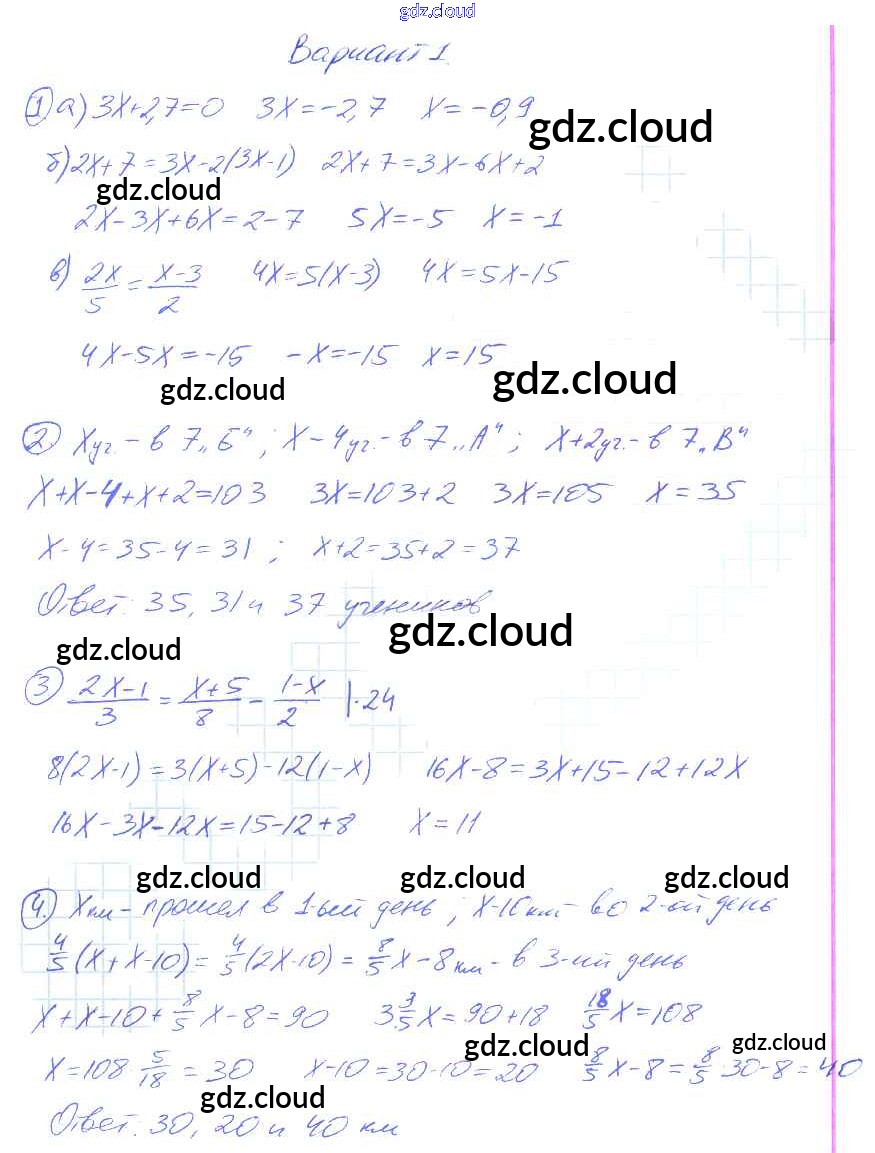 gdz.cloud
Вариант 1.
1 а) 3x+2,7=0 3x=-2,7 x=-0,9
gdz.cloud
б) 2x+7=3x-2(3x-1) 2x+7=3x-6x+2
gdz.cloud
2x-3x+6x=2-7 5x=-5 x=-1
в) 2x/5 = x-3/2 4x=5(x-3) 4x=5x-15
4x-5x=-15 -x=-15 x=15
gdz.cloud gdz.cloud
2 x уч. - в 7 „Б“; x-4 уч. - в 7 „А“; x+2 уч. - в 7 „В“
x+x-4+x+2=103 3x=103+2 3x=105 x=35
x-4=35-4=31; x+2=35+2=37
Ответ: 35, 31 и 37 учеников
gdz.cloud gdz.cloud
3 2x-1/3 = x+5/8 - 1-x/2 |·24
8(2x-1)=3(x+5)-12(1-x) 16x-8=3x+15-12+12x
16x-3x-12x=15-12+8 x=11
gdz.cloud gdz.cloud gdz.cloud
4. x км - прошел в 1-ый день; x-10 км - во 2-ой день
4/5(x+x-10)=4/5(2x-10)=8/5x-8 км - в 3-ий день
x+x-10+8/5x-8=90 3 3/5x=90+18 18/5x=108
gdz.cloud gdz.cloud
x=108·5/18=30 x-10=30-10=20 8/5x-8=8/5·30-8=40
gdz.cloud
Ответ: 30, 20 и 40 км